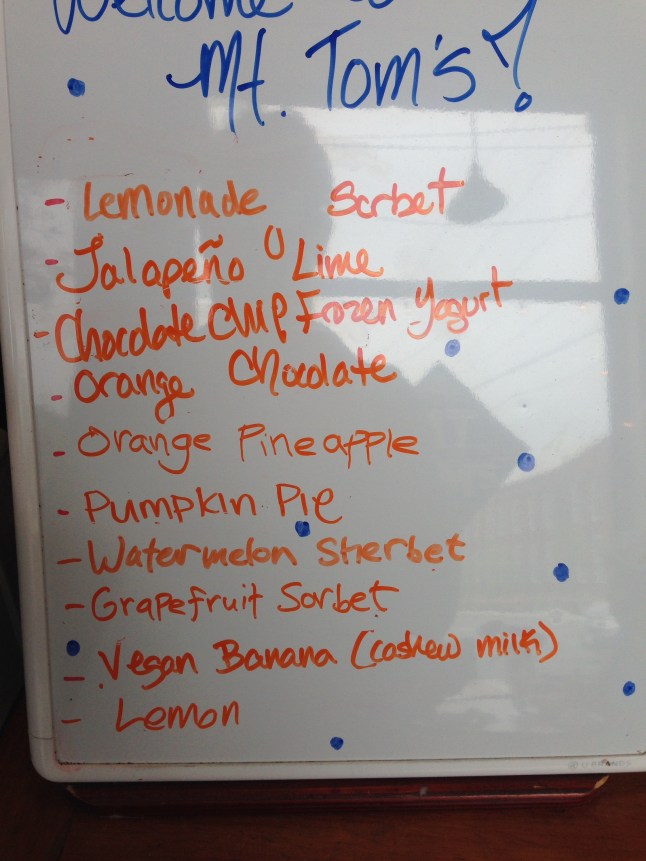 Welcome to
Mt. Tom's!
- Lemonade Sorbet
- Jalapeño Lime
- Chocolate Chip Frozen Yogurt
- Orange Chocolate
- Orange Pineapple
- Pumpkin Pie
- Watermelon Sherbet
- Grapefruit Sorbet
- Vegan Banana (cashew milk)
- Lemon